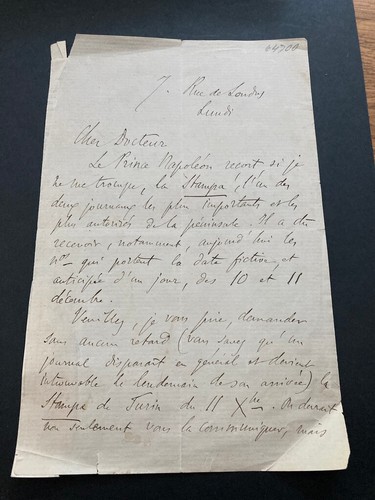 64200
7. Rue de Londres
Lundi
Cher Docteur
Le Prince Napoléon reçoit si je
ne me trompe, la Stampa, l'un des
deux journaux les plus importants et les
plus autorisés de la péninsule. Il a dû
recevoir, notamment, aujourd'hui les
nos qui portent la date fictive, et
anticipée d'un jour, des 10 et 11
décembre.
Veuillez, je vous prie, demander
sans aucun retard (vous savez qu'un
journal disparait en général et devient
introuvable le lendemain de son arrivée) la
Stampa de Turin du 11 Xbre. On devrait
non seulement vous la communiquer, mais